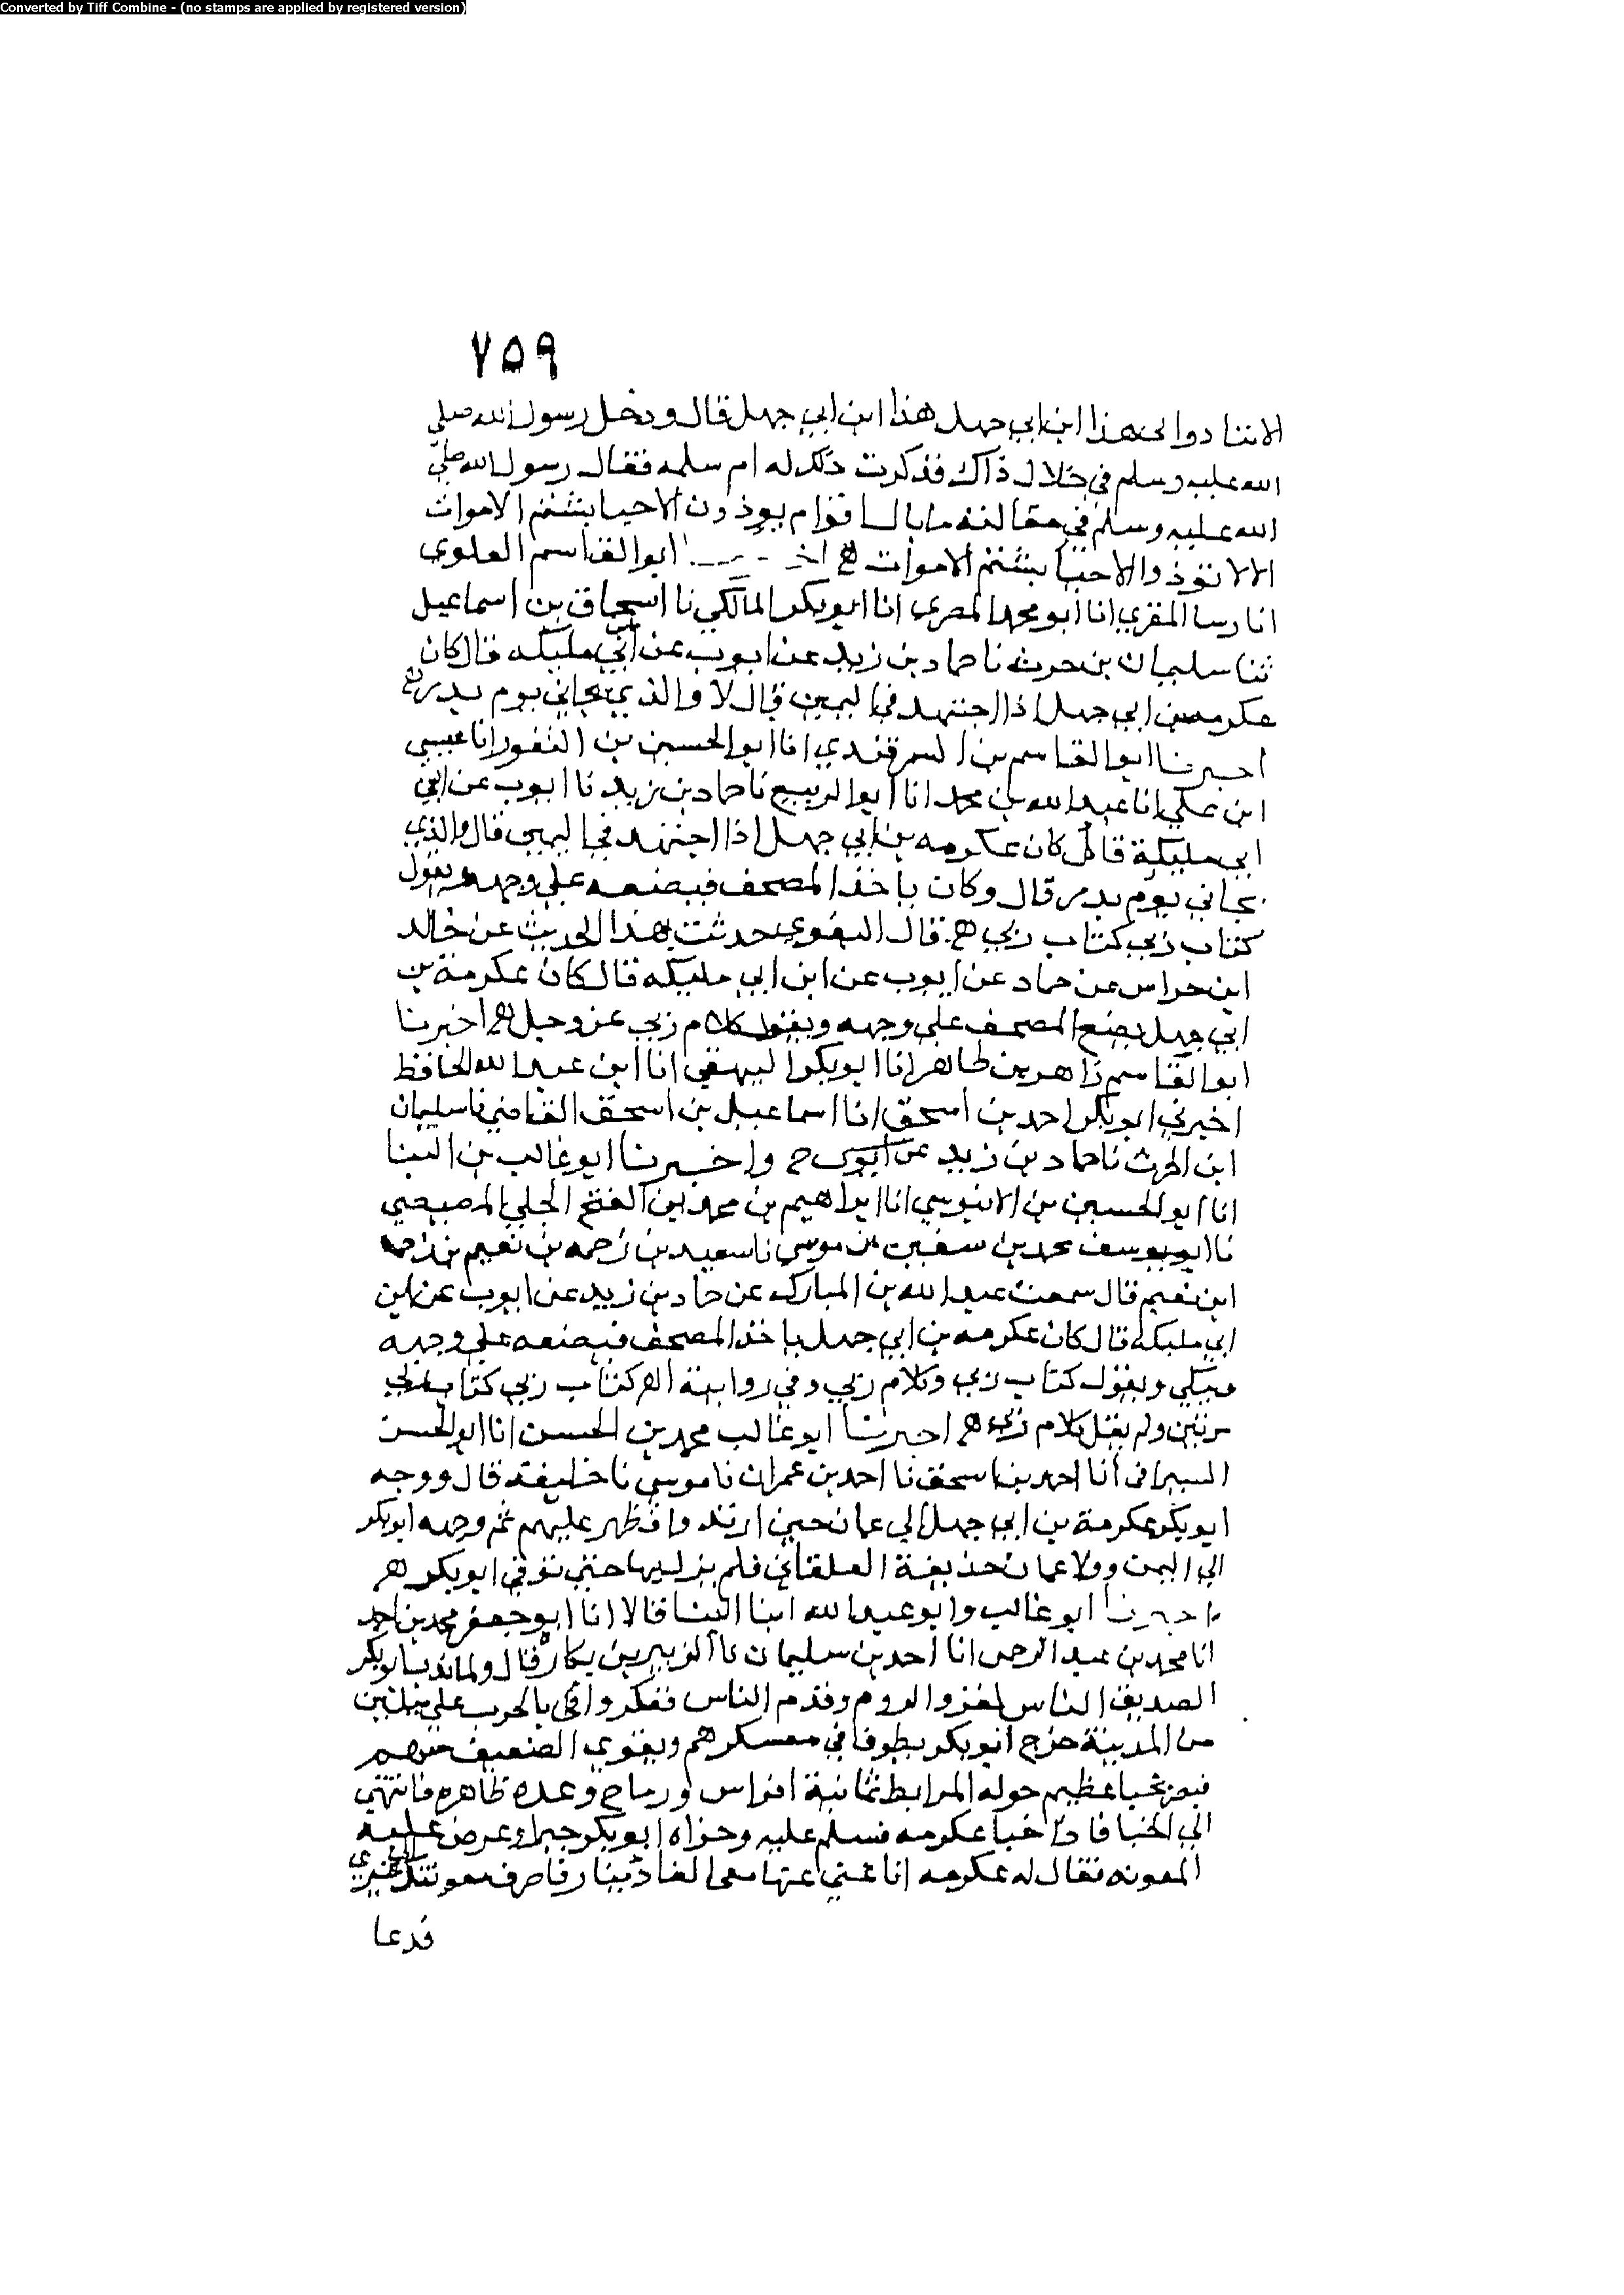 Converted by Tiff Combine - (no stamps are applied by registered version)
٧٥٩
الا تنادوا هذا ابن ابي جهل هذا ابن ابي جهل قال ودخل رسول الله صلي
الله عليه وسلم في خلال ذاك فذكرت ذلك له ام سلمه فقال رسول الله صلي
الله عليه وسلم في مقالته ما بال اقوام يوذون الاحيا بشتم الاموات
الا لا توذوا الاحيا بشتم الاموات ابوا القاسم العلوي
انا رسا المقري انا ابو محمد المصري انا ابو بكر المالكي نا اسحاق بن اسماعيل
ثنا سليمان بن حرث نا حماد بن زيد عن ايوب عن ابي مليكه قال كان
عكرمه بن ابي جهل اذا اجتهد في اليمين قال لا والذي نجاني يوم بدر
اخبرنا ابوا القاسم بن السمرقندي انا ابو الحسين بن النقور انا عيسي
ابن علي انا عبد الله بن محمد انا ابوا الربيع نا حماد بن زيد نا ايوب عن ابي
ابي مليكة قال كان عكرمه بن ابي جهل اذا اجتهد في اليمين قال والذي
نجاني يوم بدر قال وكان ياخذ المصحف فيضعه علي وجهه ويقول
كتاب ربي كتاب ربي قال البغوي حدثت بهذا الحديث عن خالد
ابن خراس عن حماد عن ايوب عن ابن ابي مليكه قال كان عكرمة بن
ابي جهل يضع المصحف علي وجهه ويقول كلام ربي عز وجل اخبرنا
ابوا القاسم زاهر بن طاهر انا ابو بكر البيهقي انا ابن عبد الله الحافظ
اخبرني ابو بكر احمد بن اسحق انا اسماعيل بن اسحق القاضي نا سليمان
ابن الحرث نا حماد بن زيد عن ايوب ح واخبرنا ابو غالب بن البنا
انا ابو الحسين بن الابنوسي انا ابراهيم بن محمد بن الفتح الجلي المصيصي
نا ابو يوسف محمد بن سفين بن موسي نا سعيد بن رحمه بن نعيم
ابن نعيم قال سمعت عبد الله بن المبارك عن حماد بن زيد عن ايوب عن ابن
ابي مليكه قال كان عكرمه بن ابي جهل ياخذ المصحف فيضعه علي وجهه
فيبكي ويقول كتاب ربي وكلام ربي وفي رواية كتاب ربي كتاب ربي
مرتين ولم يقل كلام ربي اخبرنا ابو غالب محمد بن الحسن انا ابو الحسن
السيرافي انا احمد بن اسحق نا احمد بن عمران نا موسي نا خليفه قال ووجه
ابو بكر عكرمة بن ابي جهل الي عمان حين ارتدوا فظهر عليهم ثم وجهه ابو بكر
الي اليمن وولا عمان حذيفة العلقاني فلم يزل بها حتي توفي ابو بكر
اخبرنا ابو غالب وابو عبد الله ابنا البنا قالا انا ابو جعفر محمد بن احمد
انا محمد بن عبد الرحمن انا احمد بن سليمان نا الزبير بن بكار قال ولما ندب ابو بكر
الصديق الناس لغزوا الروم وقدم الناس فعكروا في بالجرب علي ميلين
من المدينة خرج ابو بكر يطوف في معسكرهم ويقوي الضعيف منهم
فبصر بخبا عظيم حوله المرابط ثمانية افراس ورماح وعده ظاهره فانتهي
الي الخبا فاذا خبا عكرمه فسلم عليه وجزاه ابو بكر خيرا وعرض عليه
المعونه فقال له عكرمه انا غني عنها معي الفا دينار فاصرف معونتك الي غيري
فدعا